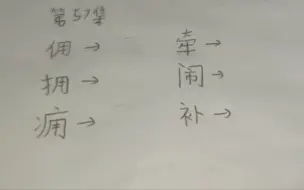 第57集
佣→ 牵→
拥→ 闹→
痈→ 补→